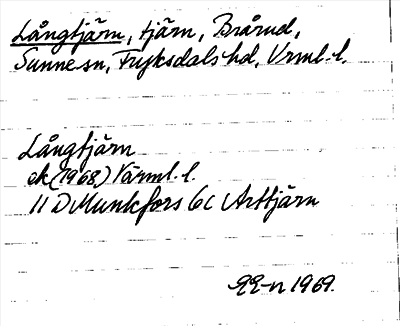 Långtjärn, tjärn, Brårud,
Sunne sn, Fryksdals hd, Vrml. l.
Långtjärn
ek (1968) Värml. l.
11 D Munkfors 6c Arttjärn
1969.